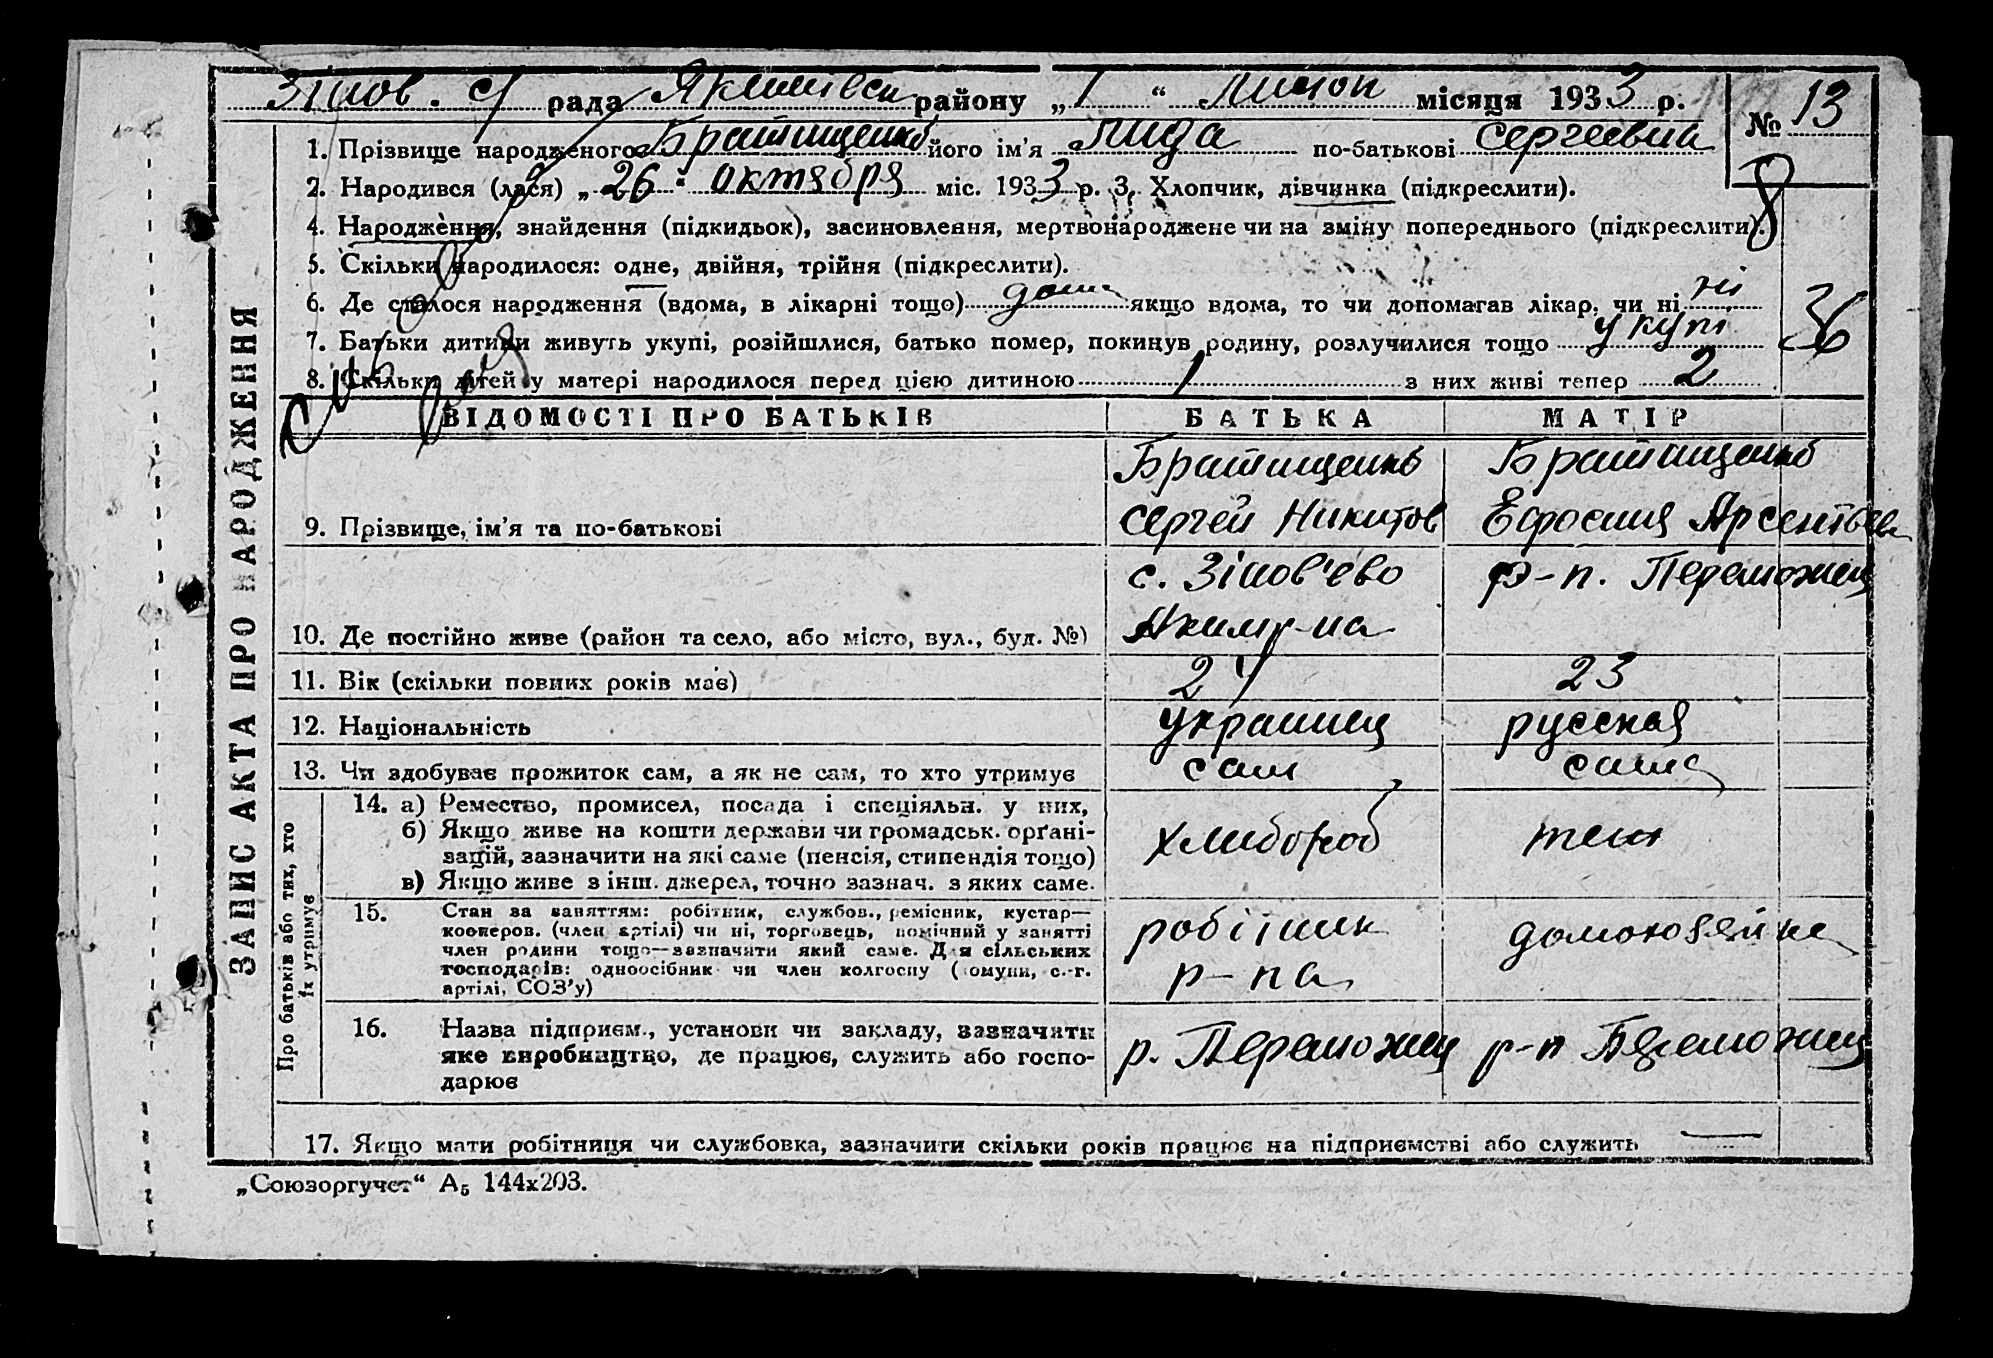 Зінов. с/ рада Якимівськ району „1“ Листоп місяця 1933 р. № 13
1. Прізвище народженого Братищенко його ім'я Лида по-батькові Сергеевна
2. Народився (лася) „26“ октября міс. 1933 р. 3. Хлопчик, дівчинка (підкреслити).
8
4. Народження, знайдення (підкидьок), засиновлення, мертвонароджене чи на зміну попереднього (підкреслити).
5. Скільки народилося: одне, двійня, трійня (підкреслити).
6. Де сталося народження (вдома, в лікарні тощо) дома якщо вдома, то чи допомагав лікар, чи ні ні
36
7. Батьки дитини живуть укупі, розійшлися, батько помер, покинув родину, розлучилися тощо укупі
8. Скільки дітей у матері народилося перед цією дитиною 1 з них живі тепер 2
ЗАПИС АКТА ПРО НАРОДЖЕННЯ
ВІДОМОСТІ ПРО БАТЬКІВ БАТЬКА МАТІР
9. Прізвище, ім'я та по-батькові
Братищенко Братищенко
Сергей Никитов Ефросиня Арсентьев
10. Де постійно живе (район та село, або місто, вул., буд. №)
с. Зінов'єво р-п. Переможец
Акимр-на
11. Вік (скільки повних років має) 24 23
12. Національність украинец русская
13. Чи здобуває прожиток сам, а як не сам, то хто утримує сам сама
Про батьків або тих, хто
їх утримує
14. а) Ремество, промисел, посада і спеціяльн. у них,
б) Якщо живе на кошти держави чи громадськ. орґані-
зацій, зазначити на які саме (пенсія, стипендія тощо)
в) Якщо живе з інш. джерел, точно зазнач. з яких саме.
хлибороб теж
15. Стан за заняттям: робітник, службов., ремісник, кустар—
кооперов. (член артілі) чи ні, торговець, помічний у занятті
член родини тощо—зазначити який саме. Для сільських
господарів: одноосібник чи член колгоспу (комуни, с.-г.
артілі, СОЗ'у)
робітник домохозяйка
р-па
16. Назва підприєм., установи чи закладу, зазначити
яке виробництво, де працює, служить або госпо-
дарює
р. Переможец р-п Переможец
17. Якщо мати робітниця чи службовка, зазначити скільки років працює на підприємстві або служить —
„Союзоргучет“ А5 144х203.